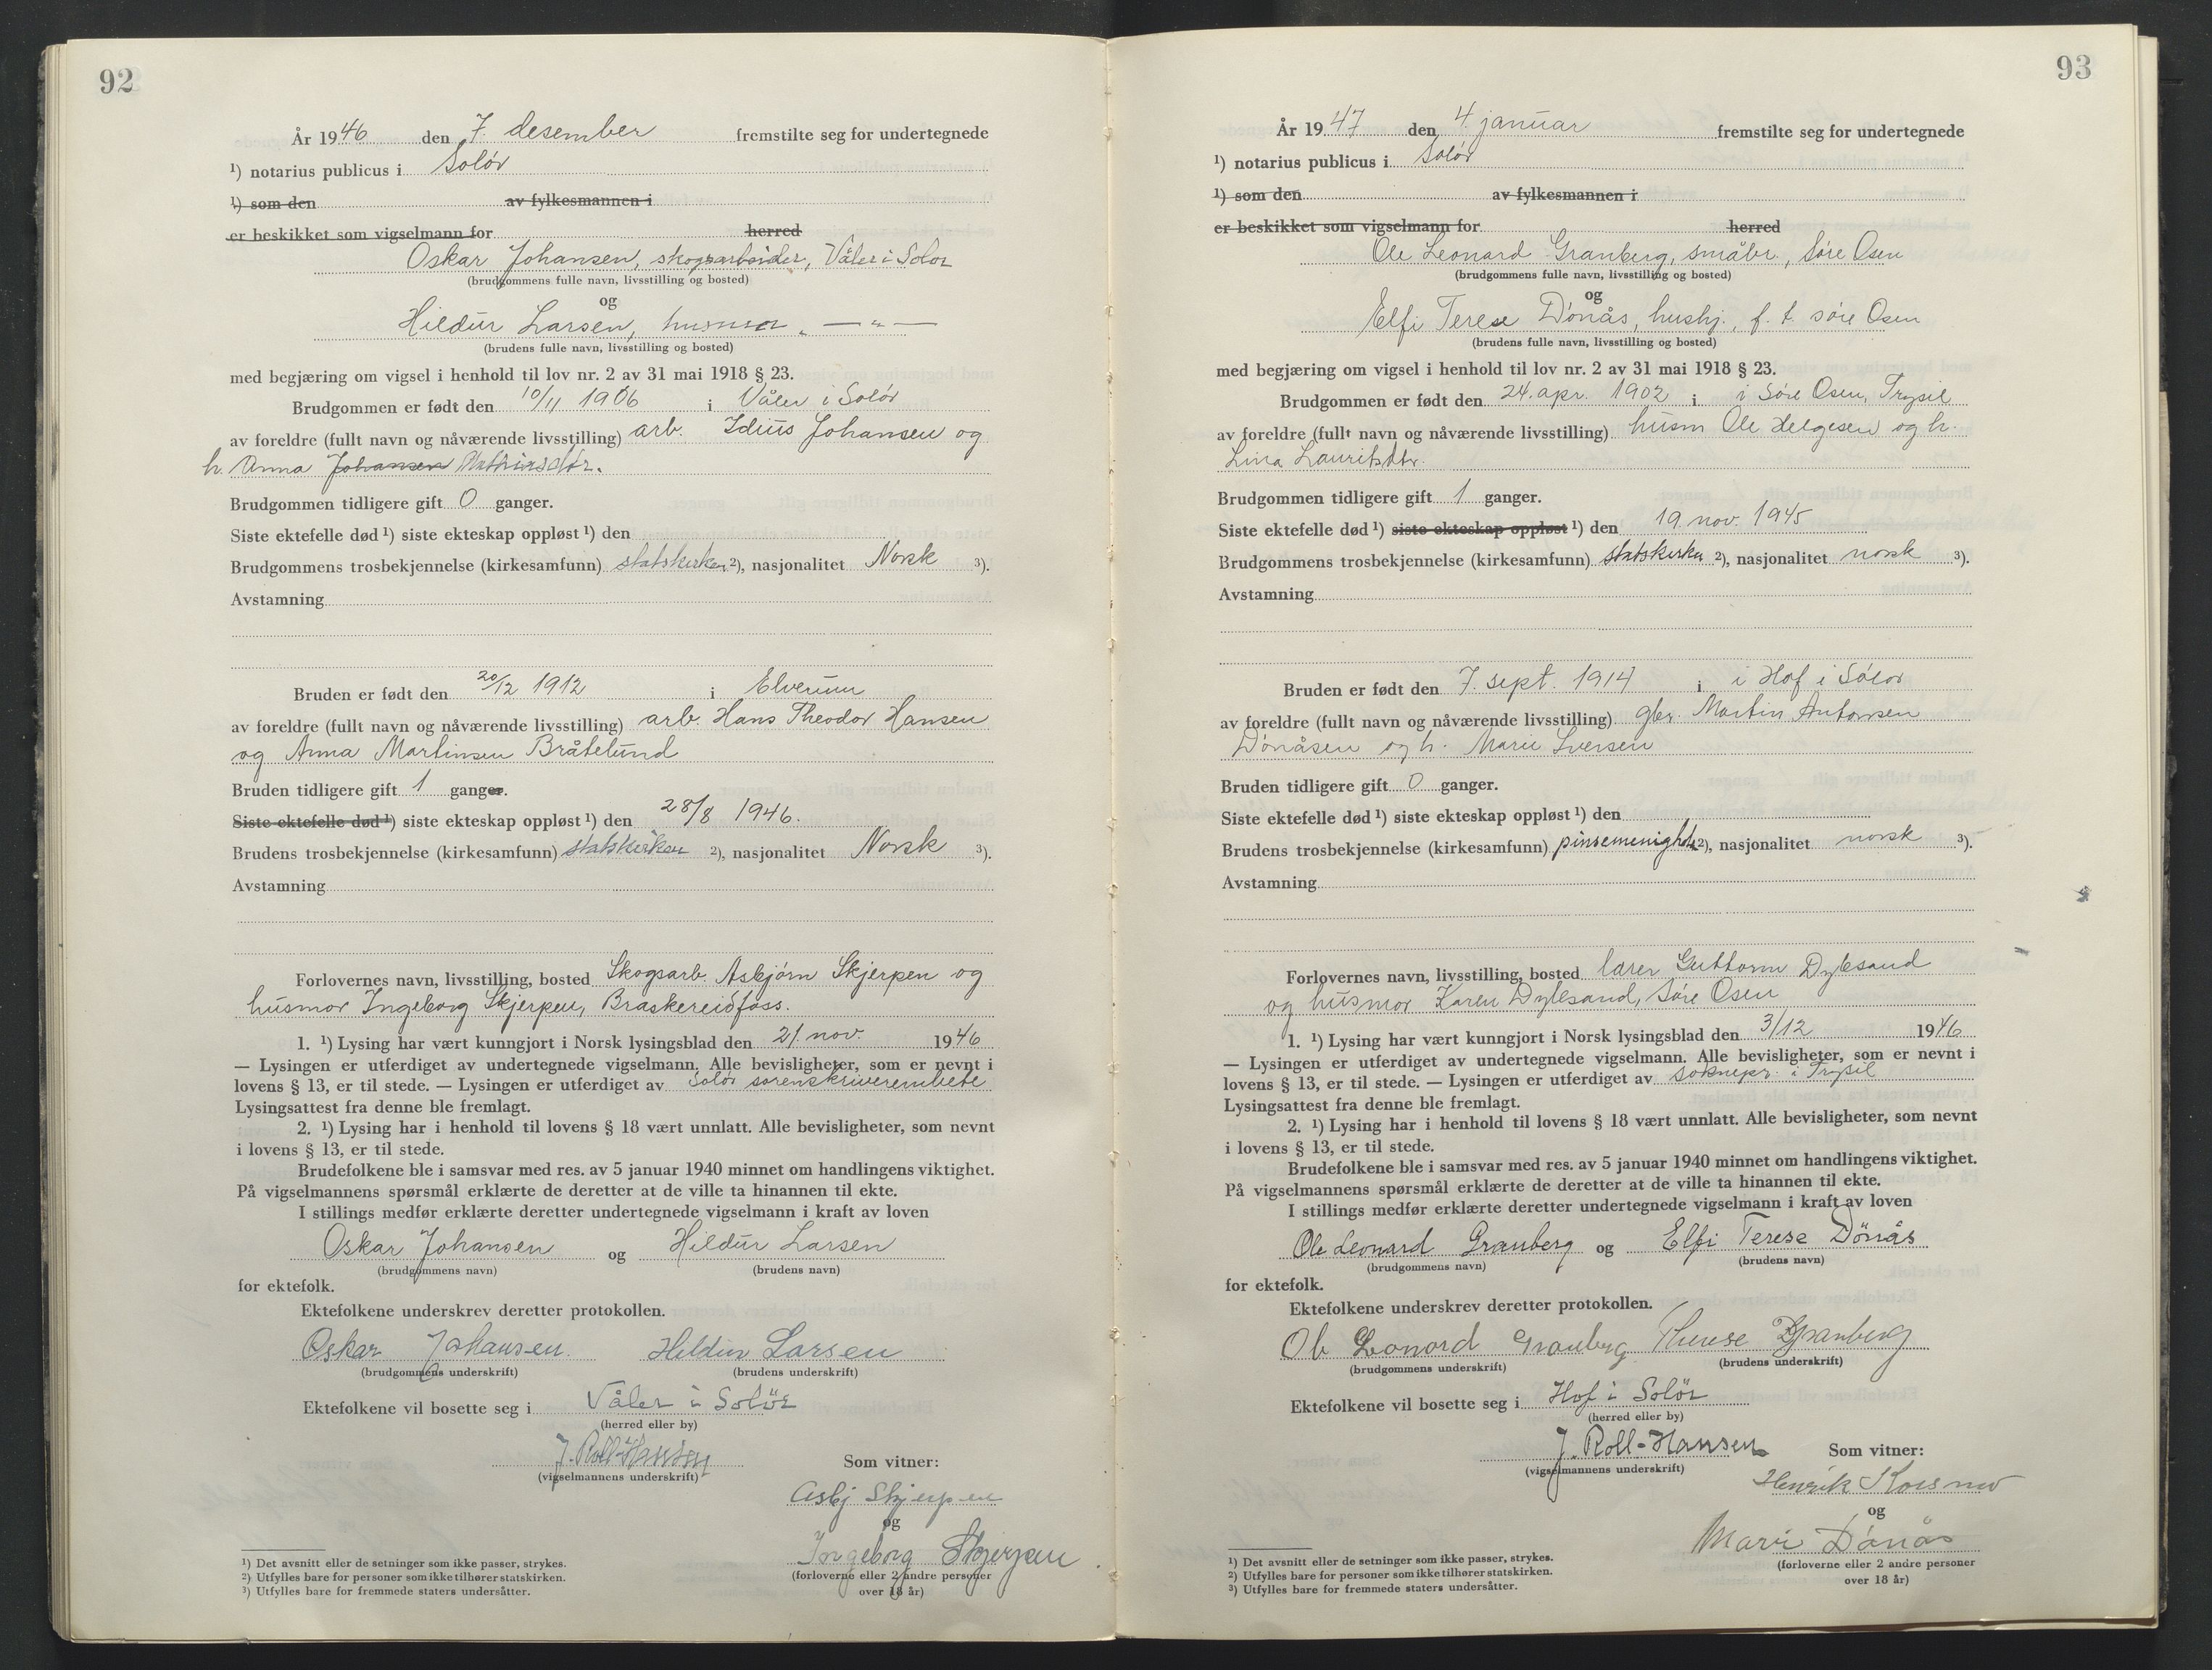 92
År 1946 den 7. desember fremstilte seg for undertegnede
¹) notarius publicus i Solør
¹) som den av fylkesmannen i
er beskikket som vigselmann for herred
Oskar Johansen, skogsarbeider, Våler i Solør
(brudgommens fulle navn, livsstilling og bosted)
og
Hildur Larsen, husmor, — " —
(brudens fulle navn, livsstilling og bosted)
med begjæring om vigsel i henhold til lov nr. 2 av 31 mai 1918 § 23.
Brudgommen er født den 10/11 1906 i Våler i Solør
av foreldre (fullt navn og nåværende livsstilling) arb. Idius Johansen og
h. Anna Johansen Mathiasdtr.
Brudgommen tidligere gift 0 ganger.
Siste ektefelle død ¹) siste ekteskap oppløst ¹) den
Brudgommens trosbekjennelse (kirkesamfunn) statskirken ²), nasjonalitet Norsk ³).
Avstamning
Bruden er født den 20/12 1912 i Elverum
av foreldre (fullt navn og nåværende livsstilling) arb. Hans Theodor Hansen
og Anna Martinsen Bråtelund
Bruden tidligere gift 1 ganger.
Siste ektefelle død ¹) siste ekteskap oppløst ¹) den 28/8 1946.
Brudens trosbekjennelse (kirkesamfunn) statskirken ²), nasjonalitet Norsk ³).
Avstamning
Forlovernes navn, livsstilling, bosted Skogsarb. Asbjørn Skjerpen og
husmor Ingeborg Skjerpen, Braskereidfoss.
1. ¹) Lysing har vært kunngjort i Norsk lysingsblad den 21. nov. 1946
— Lysingen er utferdiget av undertegnede vigselmann. Alle bevisligheter, som er nevnt i
lovens § 13, er til stede. — Lysingen er utferdiget av Solør sorenskriverembete
Lysingsattest fra denne ble fremlagt.
2. ¹) Lysing har i henhold til lovens § 18 vært unnlatt. Alle bevisligheter, som nevnt
i lovens § 13, er til stede.
Brudefolkene ble i samsvar med res. av 5 januar 1940 minnet om handlingens viktighet.
På vigselmannens spørsmål erklærte de deretter at de ville ta hinannen til ekte.
I stillings medfør erklærte deretter undertegnede vigselmann i kraft av loven
Oskar Johansen og Hildur Larsen
(brudgommens navn) (brudens navn)
for ektefolk.
Ektefolkene underskrev deretter protokollen.
Oskar Johansen. Hildur Larsen
(brudgommens underskrift) (brudens underskrift)
Ektefolkene vil bosette seg i Våler i Solör
(herred eller by)
J. Roll-Hansen
(vigselmannens underskrift) Som vitner:
Asbj Skjerpen
og
Ingeborg Skjerpen
(forloverne eller 2 andre personer
over 18 år)
¹) Det avsnitt eller de setninger som ikke passer, strykes.
²) Utfylles bare for personer som ikke tilhører statskirken.
³) Utfylles bare for fremmede staters undersåtter.
93
År 1947 den 4. januar fremstilte seg for undertegnede
¹) notarius publicus i Solør
¹) som den av fylkesmannen i
er beskikket som vigselmann for herred
Ole Leonard Granberg, småbr., Søre Osen
(brudgommens fulle navn, livsstilling og bosted)
og
Elfi Terese Dönås, hushj., f. t. søre Osen
(brudens fulle navn, livsstilling og bosted)
med begjæring om vigsel i henhold til lov nr. 2 av 31 mai 1918 § 23.
Brudgommen er født den 24. apr. 1902 i i Søre Osen, Trysil
av foreldre (fullt navn og nåværende livsstilling) husm Ole Helgesen og h.
Lina Lauritsdtr.
Brudgommen tidligere gift 1 ganger.
Siste ektefelle død ¹) siste ekteskap oppløst ¹) den 19. nov. 1945
Brudgommens trosbekjennelse (kirkesamfunn) statskirken ²), nasjonalitet norsk ³).
Avstamning
Bruden er født den 7. sept. 1914 i i Hof i Solør
av foreldre (fullt navn og nåværende livsstilling) gbr. Martin Antonsen
Dönåsen og h. Marie Iversen
Bruden tidligere gift 0 ganger.
Siste ektefelle død ¹) siste ekteskap oppløst ¹) den
Brudens trosbekjennelse (kirkesamfunn) pinsemenighet ²), nasjonalitet norsk ³).
Avstamning
Forlovernes navn, livsstilling, bosted lærer Guttorm Dylesand
og husmor Karen Dylesand, Søre Osen
1. ¹) Lysing har vært kunngjort i Norsk lysingsblad den 3/12 1946
— Lysingen er utferdiget av undertegnede vigselmann. Alle bevisligheter, som er nevnt i
lovens § 13, er til stede. — Lysingen er utferdiget av soknepr. i Trysil
Lysingsattest fra denne ble fremlagt.
2. ¹) Lysing har i henhold til lovens § 18 vært unnlatt. Alle bevisligheter, som nevnt
i lovens § 13, er til stede.
Brudefolkene ble i samsvar med res. av 5 januar 1940 minnet om handlingens viktighet.
På vigselmannens spørsmål erklærte de deretter at de ville ta hinannen til ekte.
I stillings medfør erklærte deretter undertegnede vigselmann i kraft av loven
Ole Leonard Granberg og Elfi Terese Dönås
(brudgommens navn) (brudens navn)
for ektefolk.
Ektefolkene underskrev deretter protokollen.
Ole Leonard Granberg Therese Granberg
(brudgommens underskrift) (brudens underskrift)
Ektefolkene vil bosette seg i Hof i Solör
(herred eller by)
J. Roll-Hansen Som vitner:
(vigselmannens underskrift)
Henrik
og
Marie Dönås
(forloverne eller 2 andre personer
over 18 år)
¹) Det avsnitt eller de setninger som ikke passer, strykes.
²) Utfylles bare for personer som ikke tilhører statskirken.
³) Utfylles bare for fremmede staters undersåtter.